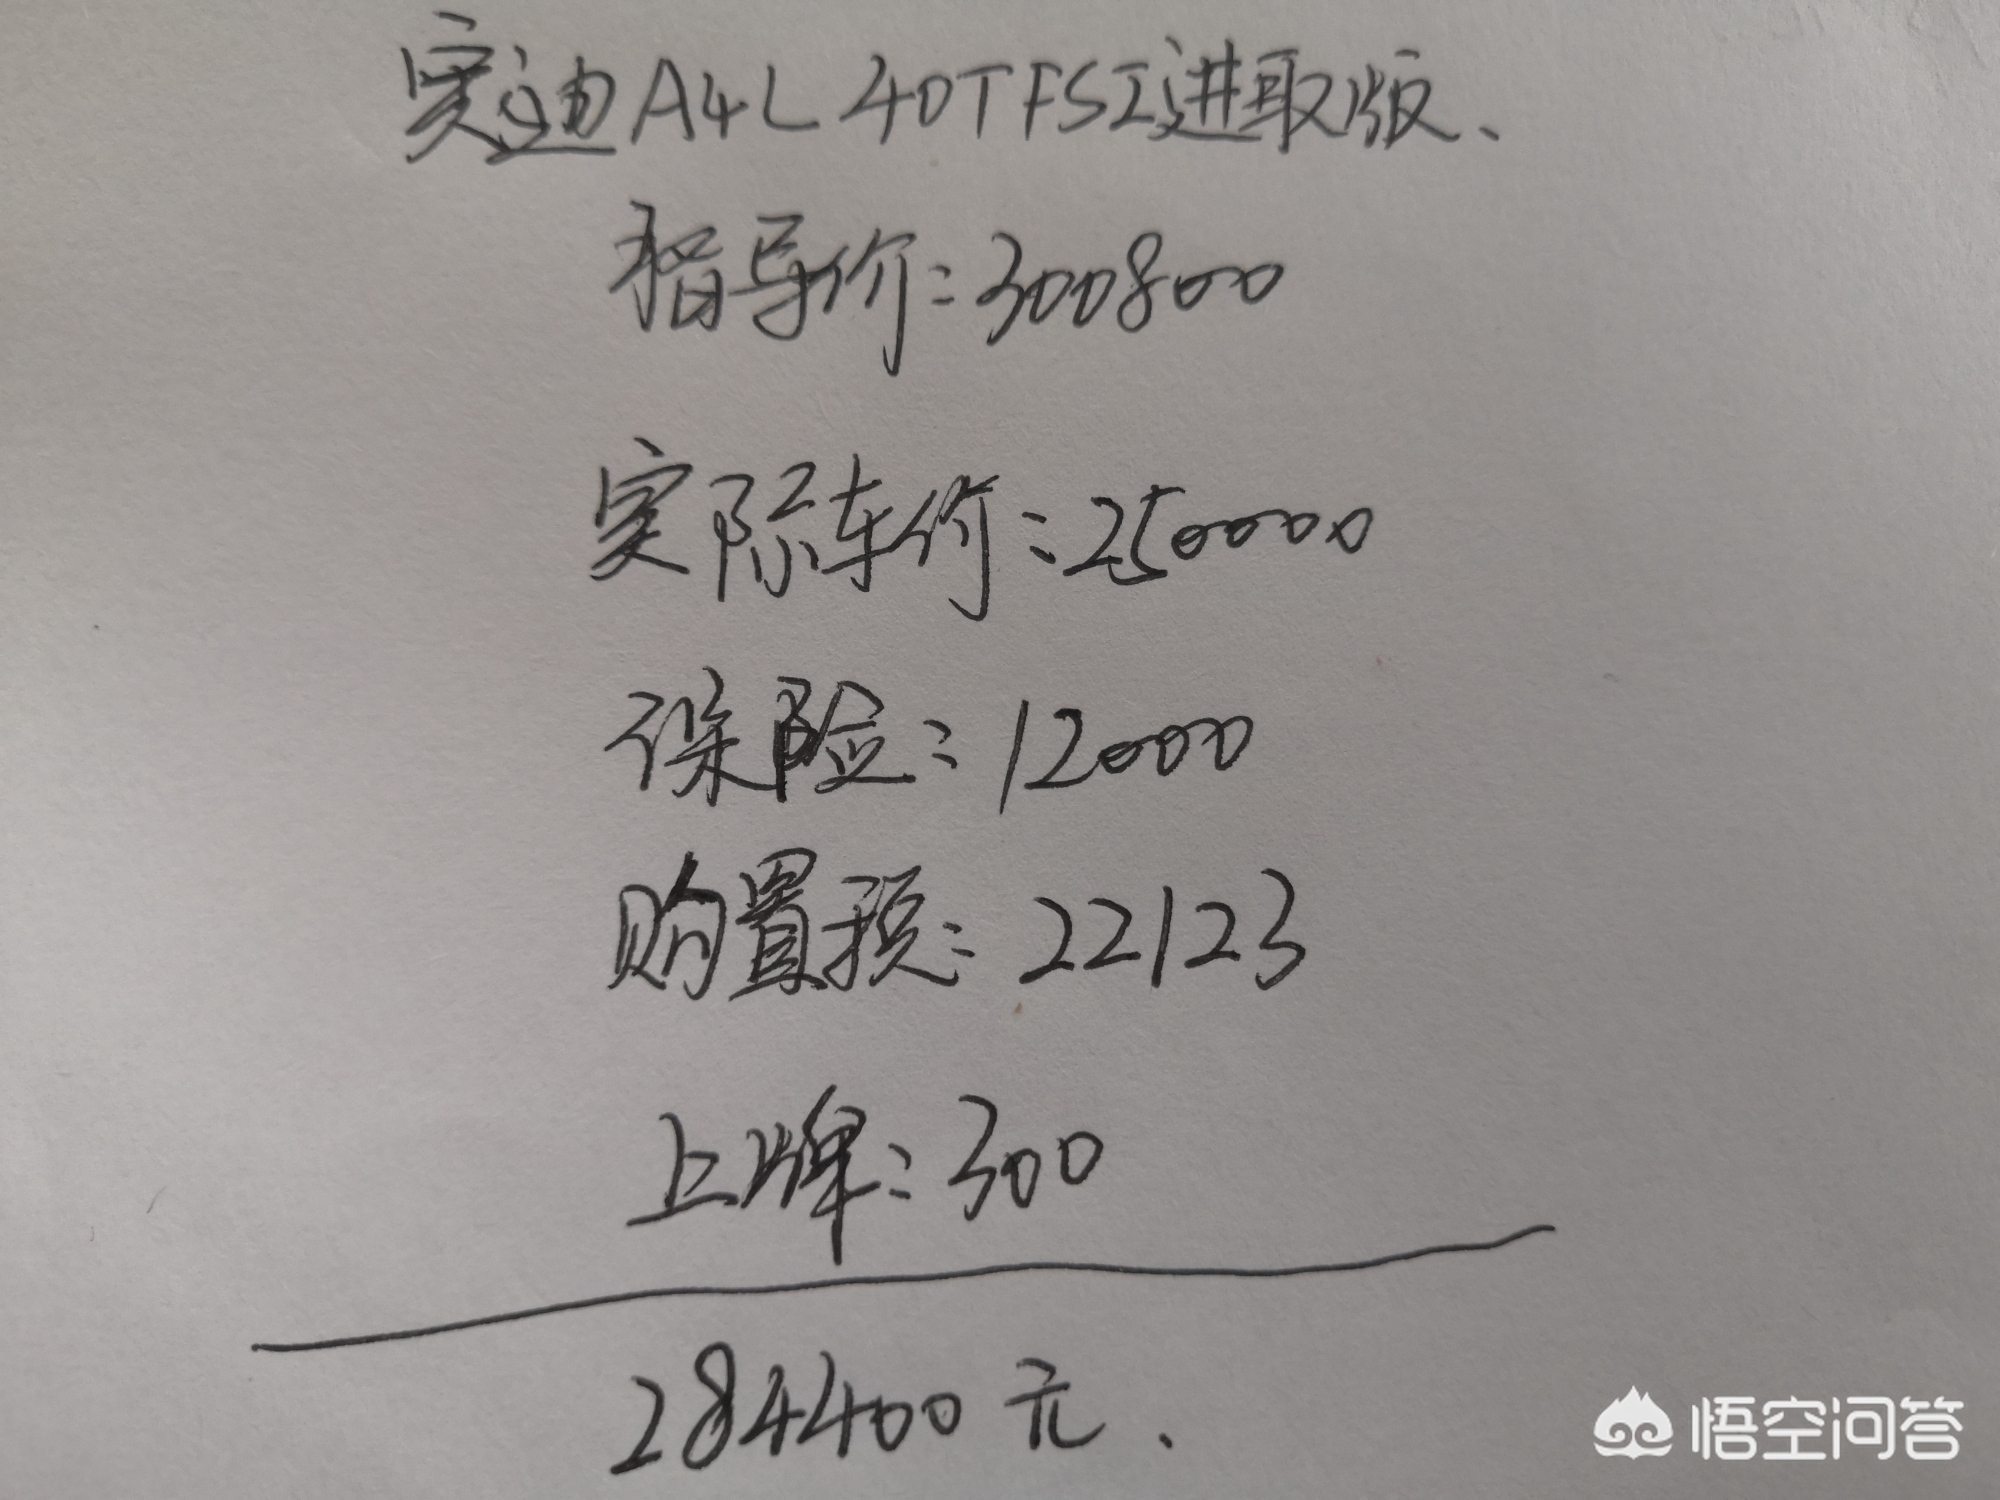 奥迪A4L 40TFSI进取版、
指导价:300800
实际车价:250000
保险:12000
购置税:22123
上牌:300
284400元.
悟空问答